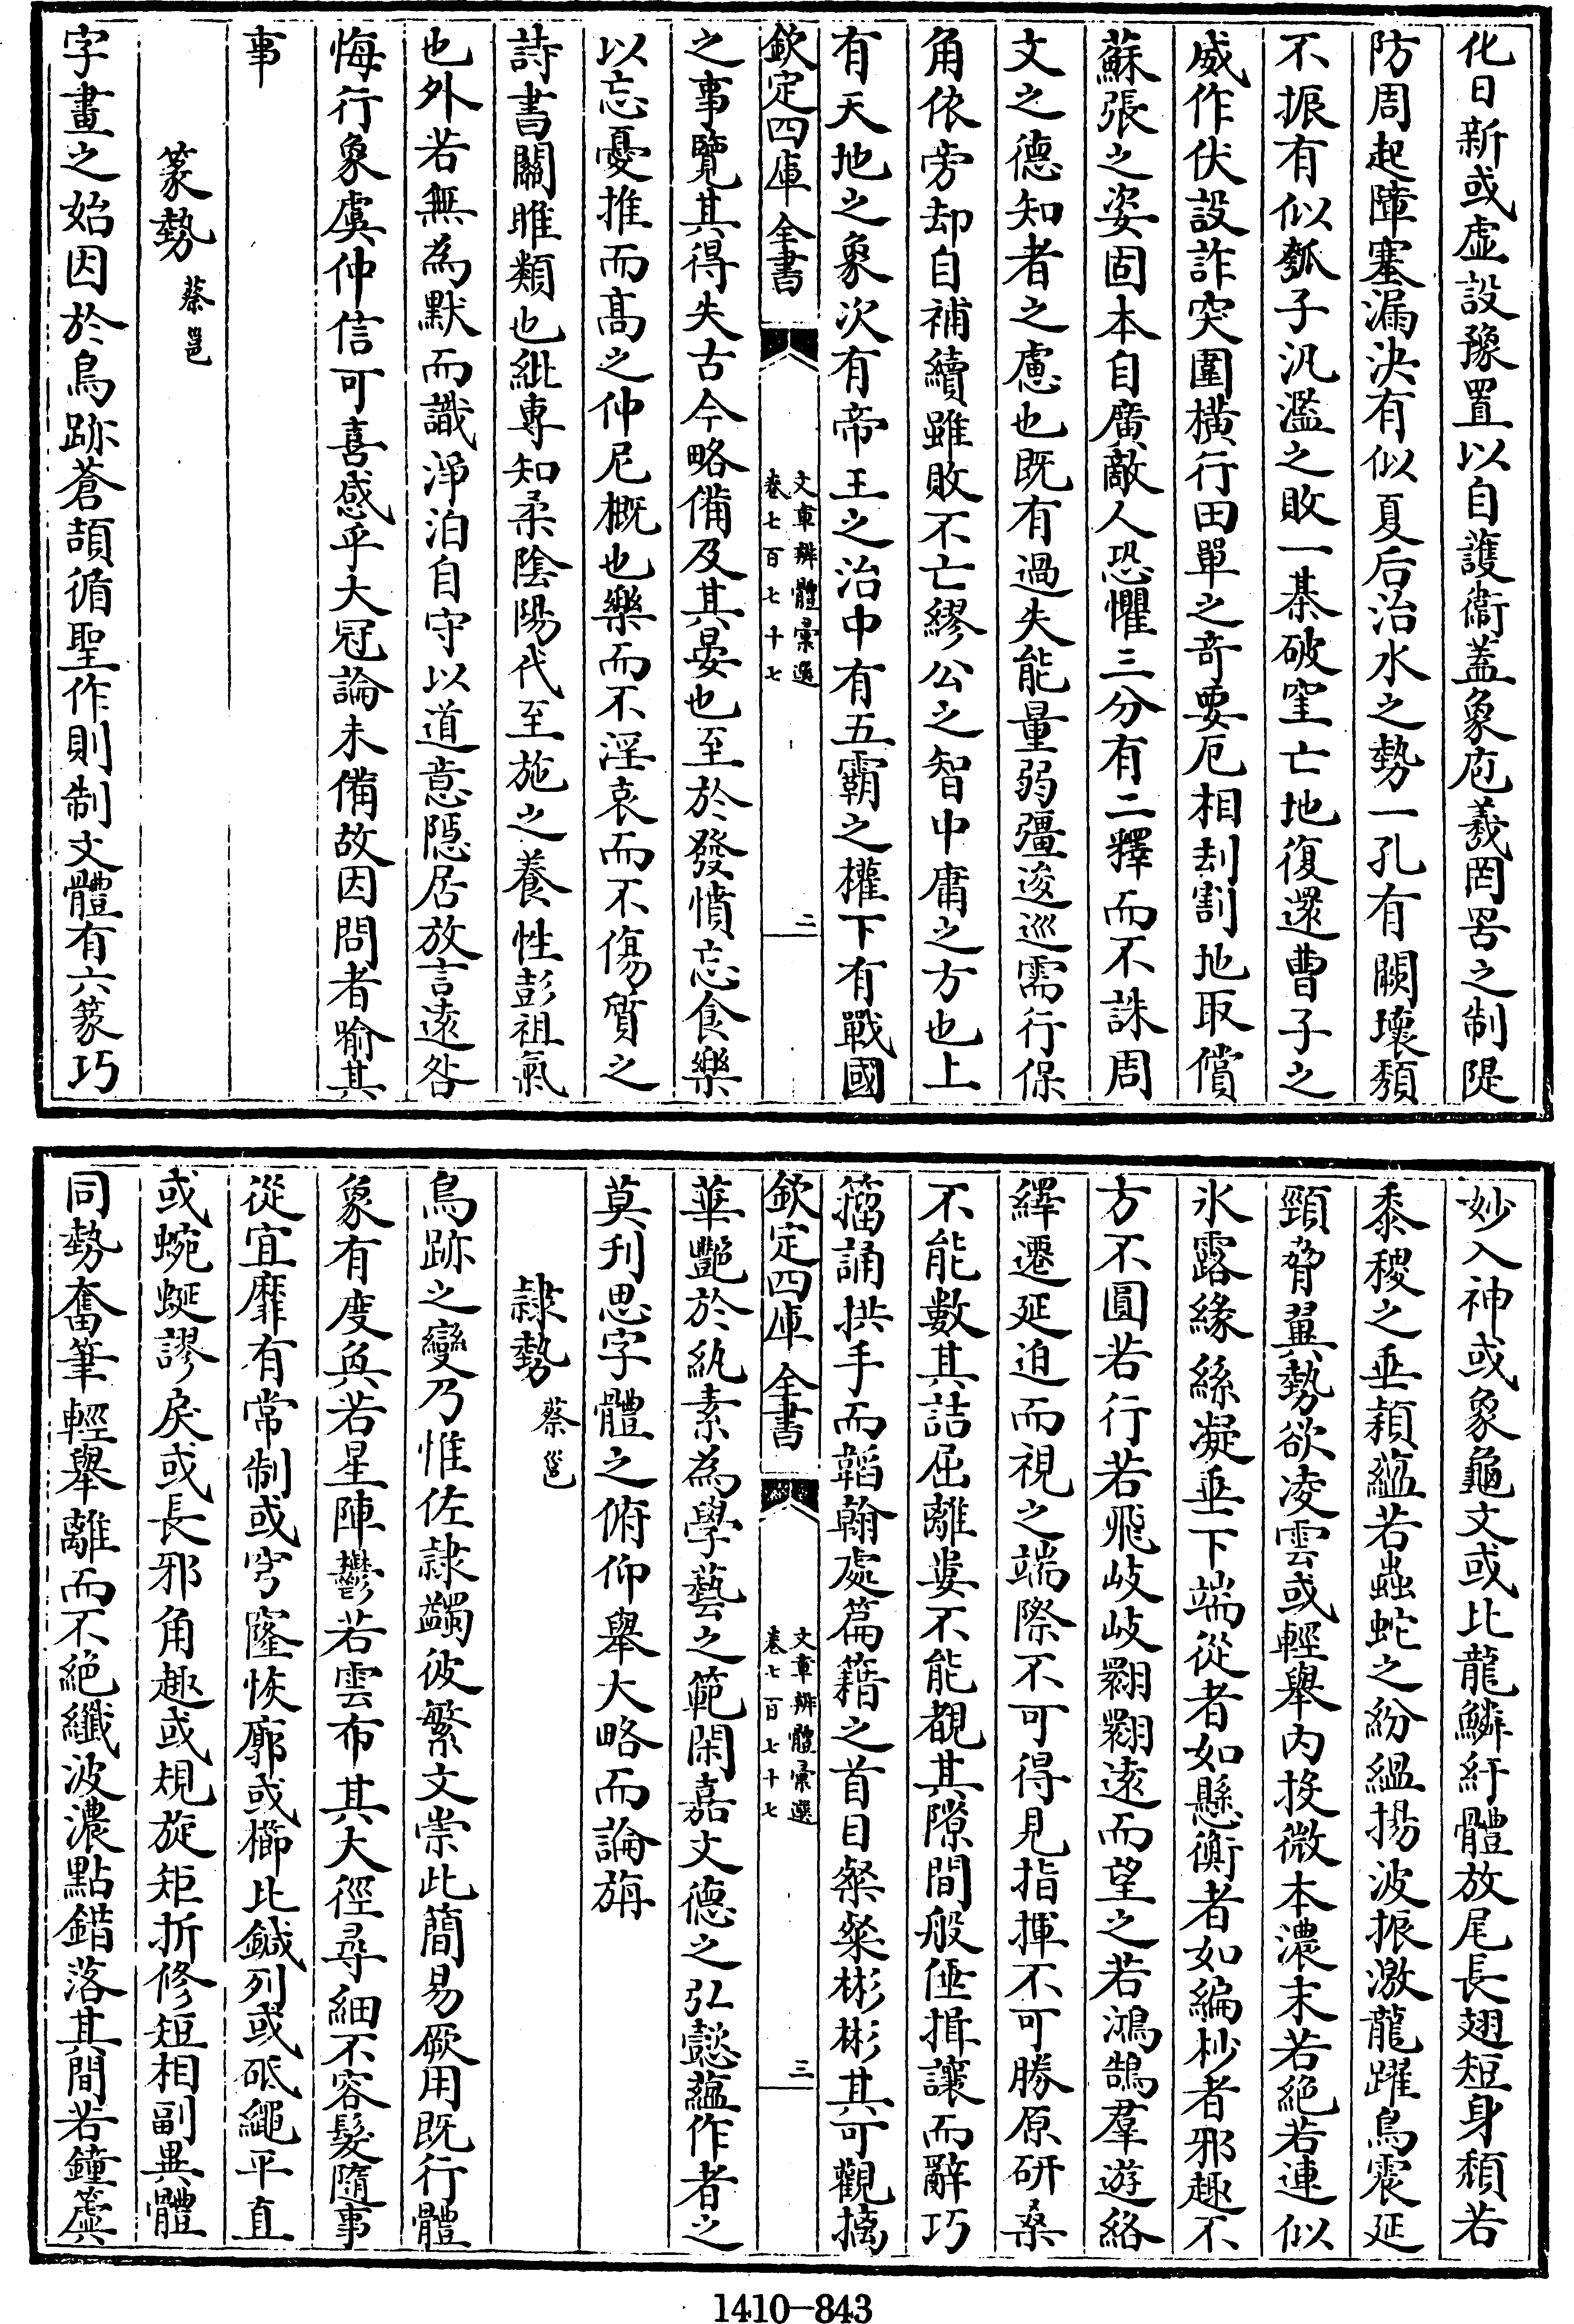 化日新或虚設豫置以自護衞蓋象庖羲罔罟之制隄
防周起障塞漏決有似夏后治水之勢一孔有闕壞頽
不振有似瓠子汎濫之敗一棊破窐亡地復還曹子之
威作伏設詐突圍横行田單之竒要厄相刦割地取償
蘇張之姿固本自廣敵人恐懼三分有二釋而不誅周
文之德知者之慮也既有過失能量弱彊逡巡需行保
角依旁却自補續雖敗不亡繆公之智中庸之方也上
有天地之象次有帝王之治中有五霸之權下有戰國
欽定四庫全書
文章辨體彚選
卷七百七十七
二
之事覽其得失古今略備及其晏也至於發憤忘食樂
以忘憂推而髙之仲尼概也樂而不淫哀而不傷質之
詩書關雎類也紕專知柔陰陽代至施之養性彭祖氣
也外若無為默而識淨泊自守以道意隱居放言遠咎
悔行象虞仲信可喜感乎大冠論未備故因問者喻其
事
篆勢 蔡邕
字畫之始因於鳥跡蒼頡循聖作則制文體有六篆巧
妙入神或象龜文或比龍鱗紆體放尾長翅短身頽若
黍稷之垂穎藴若蟲蛇之紛縕揚波振激龍躍鳥震延
頸脅翼勢欲凌雲或輕舉内投微本濃末若絶若連似
氷露緣絲凝垂下端從者如懸衡者如編杪者邪趣不
方不圓若行若飛岐岐翾翾遠而望之若鴻鵠羣遊絡
繹遷延迫而視之端際不可得見指揮不可勝原研桑
不能數其詰屈離婁不能覩其隙間般倕揖讓而辭巧
籀誦拱手而韜翰處篇籍之首目粲粲彬彬其可觀摛
欽定四庫全書
文章辨體彚選
卷七百七十七
三
華艷於紈素為學藝之範閑嘉文德之弘懿藴作者之
莫刋思字體之俯仰舉大略而論旃
隷勢 蔡邕
鳥跡之變乃惟佐隷蠲彼繁文崇此簡易厥用既行體
象有度奐若星陣鬱若雲布其大徑尋細不容髮隨事
從宜靡有常制或穹窿恢廓或櫛比鍼列或砥繩平直
或蜿蜒謬戾或長邪角趣或規旋矩折修短相副異體
同勢奮筆輕舉離而不絶纖波濃點錯落其間若鐘簴
1410—843